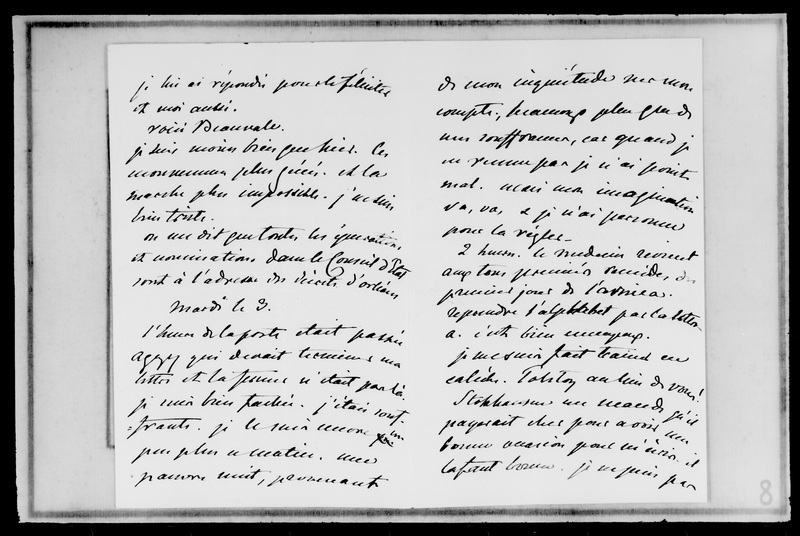 je lui ai répondu pour le féliciter
et moi aussi.
voici Beauvale.
je suis moins bien que hier. les
mouvemens plus gênés. et la
marche plus impossible. j'en suis
bien triste.
on me dit que toutes les épurations
et nominations dans le Conseil d'Etat
sont à l'adresse des décrets d'orléans
Mardi le 3.
l'heure de la poste était passée
aggy qui devait terminer ma
lettre et la fermer n'était pas là
je suis bien fachée. j'étais souf-
=frante. je le suis encore un
peu plus ce matin. une
pauvre nuit, provenant
de mon inquiétude sur mon
compte, beaucoup plus que de
mes souffrances, car quand je
ne remue pas je n'ai point
mal. mais mon imagination
va, va, & je n'ai personne
pour la régler.
2 heures. le medecin revient
aux bons premiers remèdes, des
premiers jours de
reprendre l'alphabet par la lettre
a. c'est bien ennuyeux.
je me suis fait trainer en
calèche. Tolstoy au lieu de vous!
me mande qu'il
payerait cher pour avoir une
bonne occasion pour m'écrire. il
la faut bonne. je ne puis pas
8